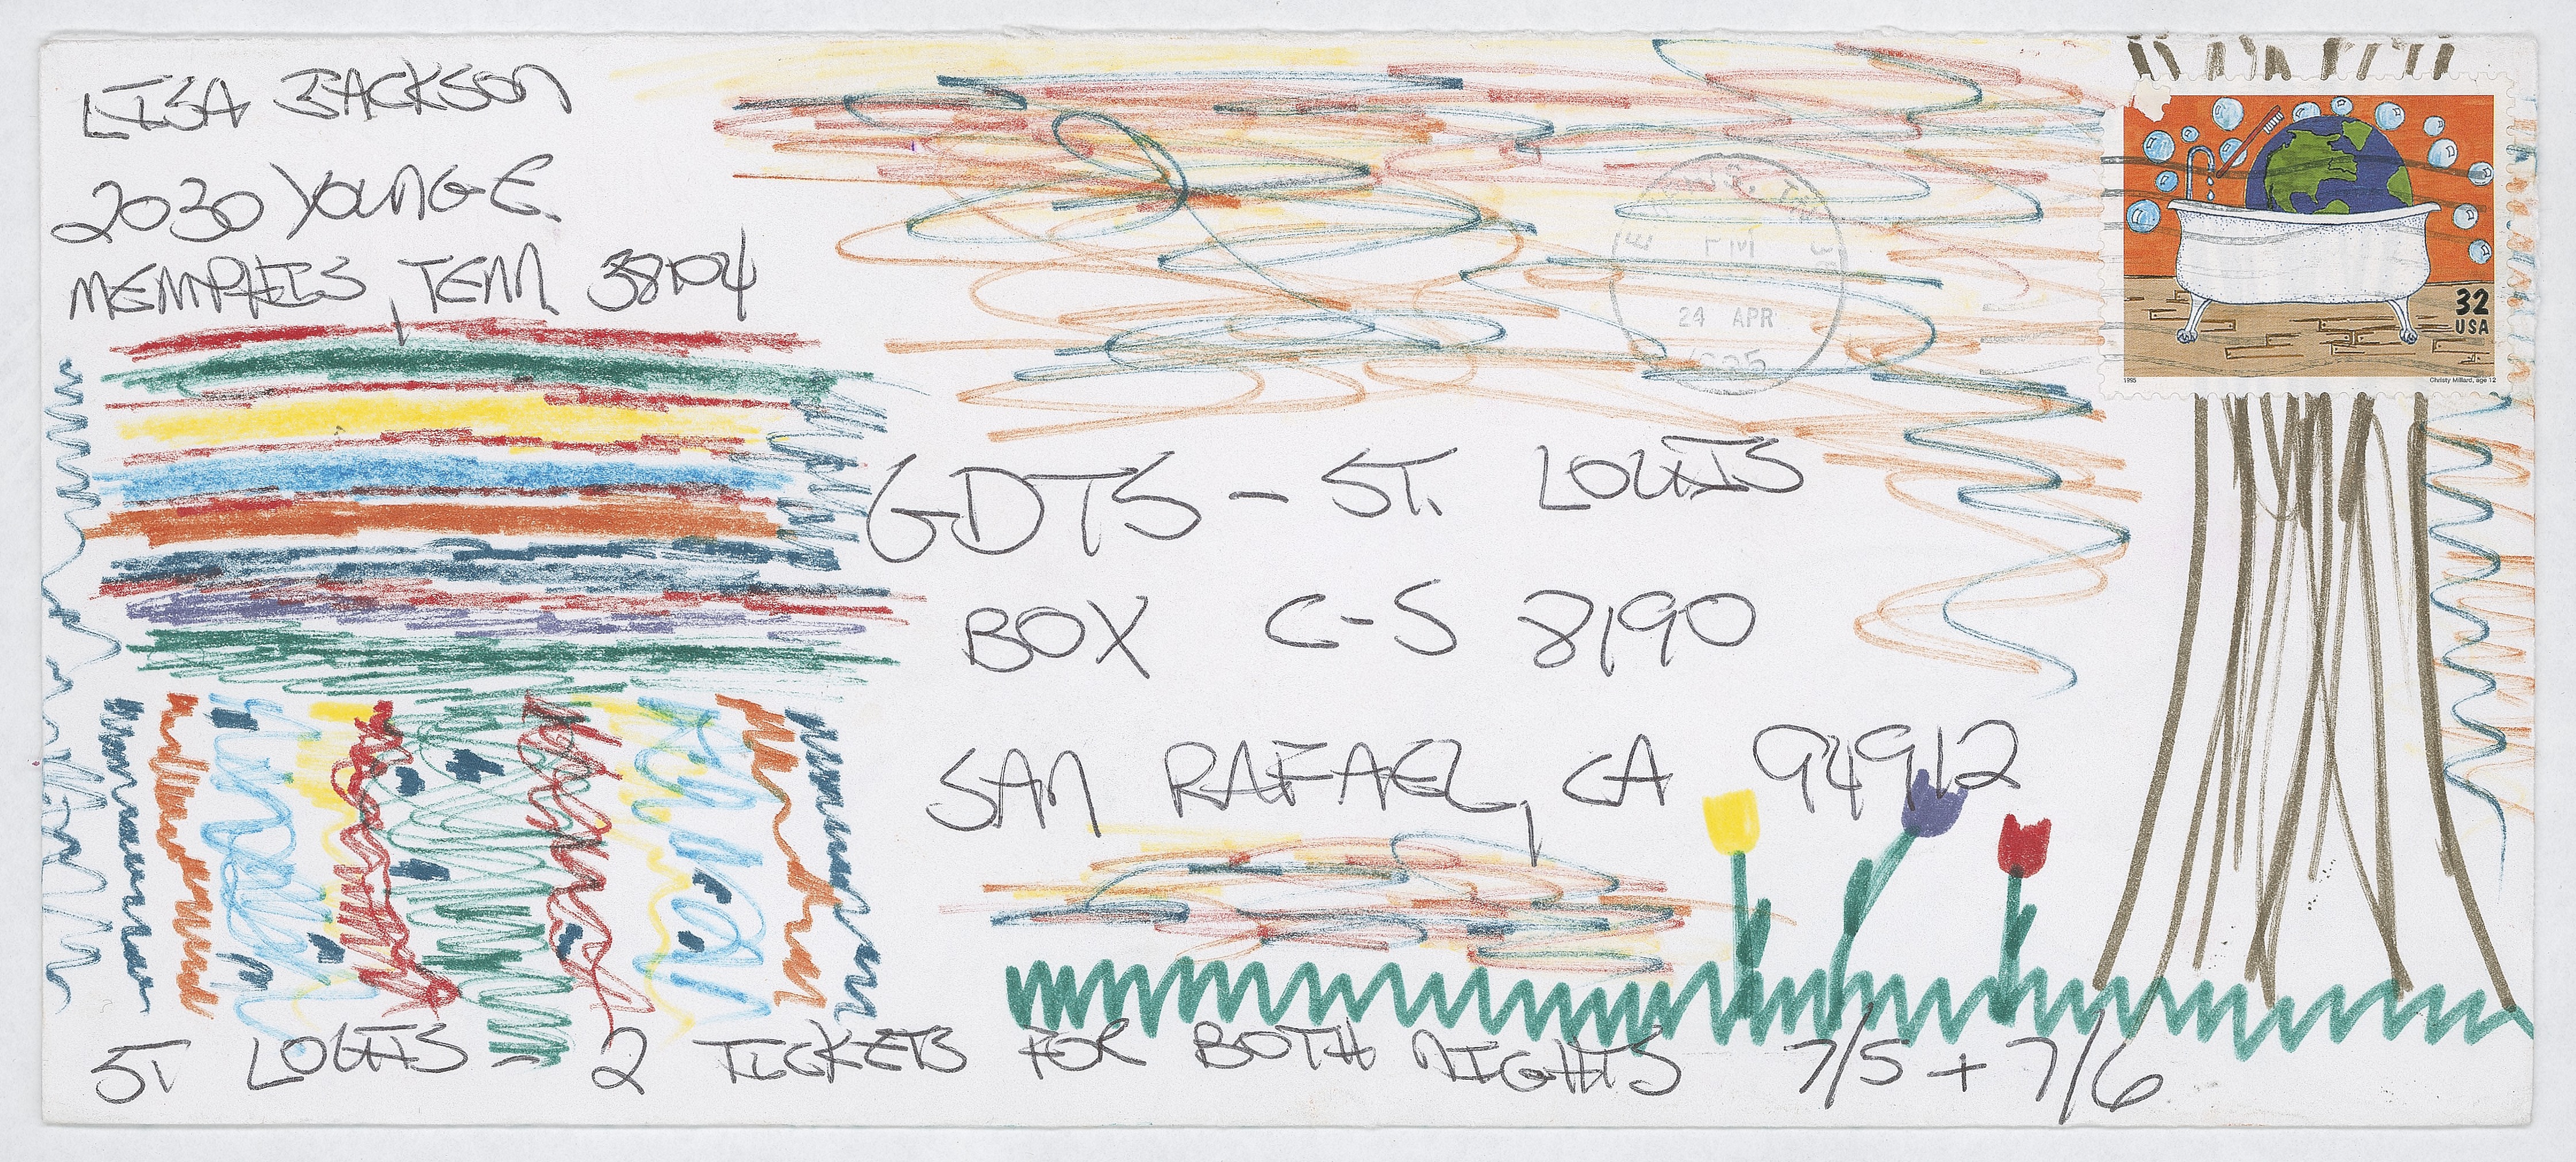 LISA JACKSON
2030 YOUNG E.
MEMPHIS, TENN. 38104
24 APR
1995
PM
32
USA
1995
Christy Millard, age 12
GDTS - ST. LOUIS
BOX C-S 8190
SAN RAFAEL, CA 94912
ST LOUIS - 2 TICKETS FOR BOTH NIGHTS 7/5 + 7/6